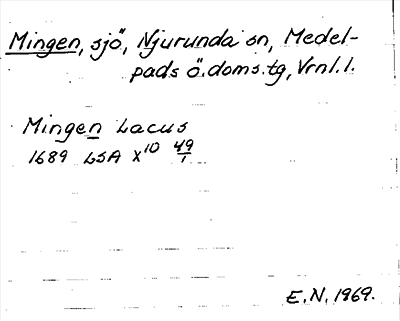 Mingen, sjö, Njurunda sn, Medel-
pads ö. doms.tg, Vrnl. l.
Mingen Lacus
1689 LSA X10 49/1
E.N. 1969.